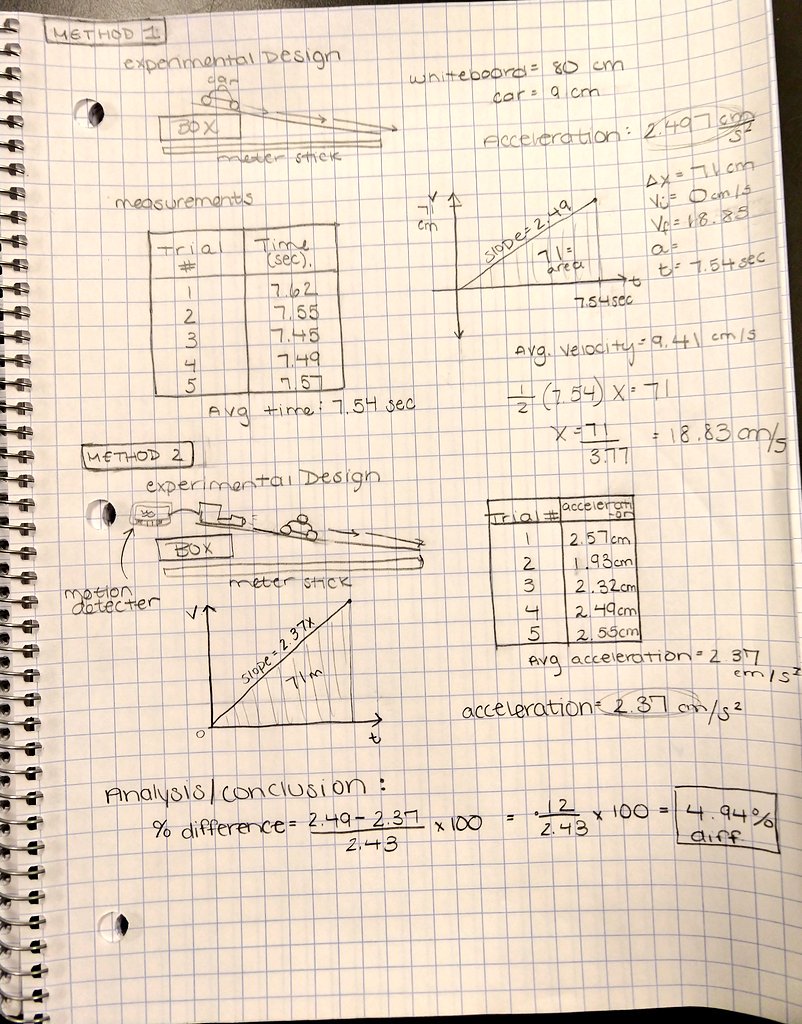 METHOD 1
experimental Design
car
BOX
meter stick
whiteboard = 80 cm
car = 9 cm
Acceleration: 2.497 cm/s²
measurements
Trial # Time (sec).
1 7.62
2 7.55
3 7.45
4 7.49
5 7.57
Avg time: 7.54 sec
V
71 cm
slope = 2.49
71 = area
t
7.54 sec
Δx = 71 cm
Vi = 0 cm/s
Vf = 18.83
a =
t = 7.54 sec
Avg. velocity = 9.41 cm/s
1/2 (7.54) X = 71
X = 71/3.77 = 18.83 cm/s
METHOD 2
experimental Design
BOX
meter stick
motion detecter
V
slope = 2.37x
71m
0
t
Trial # accelerati-on
1 2.57cm
2 1.93cm
3 2.32cm
4 2.49cm
5 2.55cm
Avg acceleration = 2.37 cm/s²
acceleration = 2.37 cm/s²
Analysis/conclusion:
% difference = 2.49 - 2.37/2.43 x 100 = .12/2.43 x 100 = 4.94% diff.